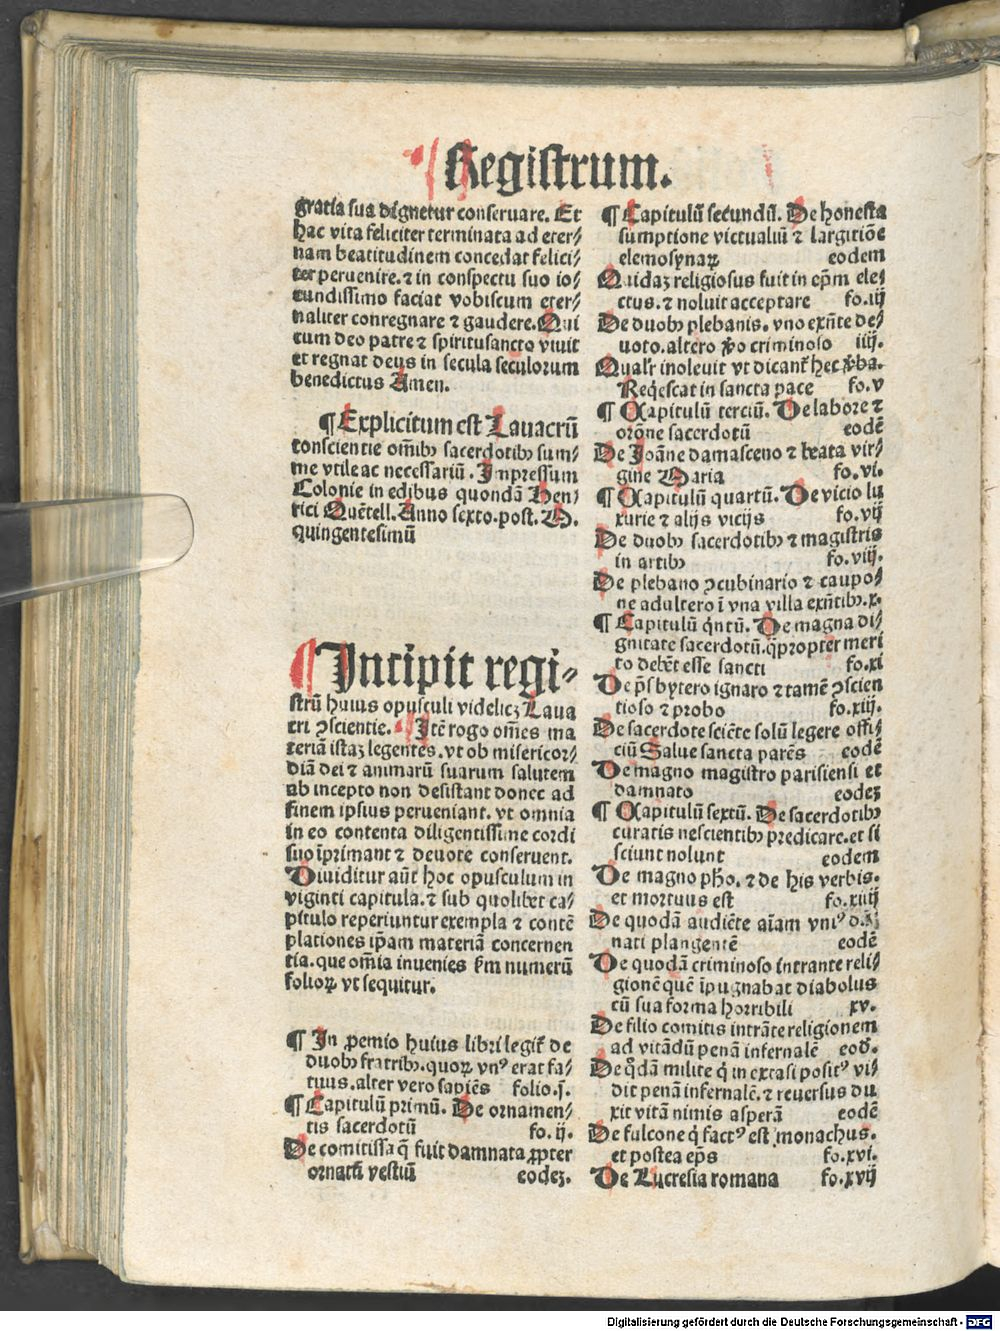 Registrum.
gratia sua dignetur conseruare. Et
hac vita feliciter terminata ad eter⸗
nam beatitudinem concedat felici⸗
ter peruenire. ⁊ in conspectu suo io⸗
cundissimo faciat vobiscum eter⸗
naliter conregnare ⁊ gaudere. Qui
cum deo patre ⁊ spiritusancto viuit
et regnat deus in secula seculorum
benedictus Amen.
¶ Explicitum est Lauacrū
conscientie om̄ibꝰ sacerdotibꝰ sum⸗
me vtile ac necessariū. Impressum
Colonie in edibus quondā Hen⸗
rici Quētell. Anno sexto. post. M.
quingentesimū
¶ Incipit regi⸗
strū huius opusculi videlicꝫ Laua
cri ꝯscientie. ¶ Itē rogo om̄es ma
teriā istaꝫ legentes. vt ob misericor⸗
diā dei ⁊ animarū suarum salutem
ab incepto non desistant donec ad
finem ipsius perueniant. vt omnia
in eo contenta diligentissime cordi
suo īprimant ⁊ deuote conseruent.
Diuiditur aūt hoc opusculum in
viginti capitula. ⁊ sub quolibet ca⸗
pitulo reperiuntur exempla ⁊ contē
plationes ip̄am materiā concernen
tia. que om̄ia inuenies ẜm numerū
folioꝝ vt sequitur.
¶ In ꝓemio huius libri legit᷑ de
duobꝰ fratribꝰ. quoꝝ vnꝰ erat fa⸗
tuus. alter vero sapiēs folio. j.
¶ Capitulū primū. De ornamen⸗
tis sacerdotū fo. ij.
De comitissa q̄ fuit damnata ꝓpter
ornatū vestiū eodeꝫ.
¶ Capitulū secundū. De honesta
sumptione victualiū ⁊ largitiōe
elemosynaꝝ eodem
Quidaꝫ religiosus fuit in ep̄m ele⸗
ctus. ⁊ noluit acceptare fo. iij
De duobꝰ plebanis. vno exn̄te de⸗
uoto. altero ꝟo criminoso iiij.
Qualr̄ inoleuit vt dicant᷑ hec ꝟba.
Reqͥescat in sancta pace fo. v
¶ Capitulū terciū. De labore ⁊
orōne sacerdotū eodē
De Joāne damasceno ⁊ beata vir⸗
gine Maria fo. vi.
¶ Capitulū quartū. De vicio lu
xurie ⁊ alijs vicijs fo. vij
De duobꝰ sacerdotibꝰ ⁊ magistris
in artibꝰ fo. viij.
De plebano ꝯcubinario ⁊ caupo⸗
ne adultero ī vna villa exn̄tibꝰ. x.
¶ Capitulū qͥntū. De magna di⸗
gnitate sacerdotū. qͣpropter meri
to debēt esse sancti fo. xi
De p̄sbytero ignaro ⁊ tamē ꝯscien
tioso ⁊ probo fo. xiij.
De sacerdote sciēte solū legere offi⸗
ciū Salue sancta parēs eodē
De magno magistro parisiensi et
damnato eodeꝫ
¶ Capitulū sextū. De sacerdotibꝰ
curatis nescientibꝰ predicare. et si
sciunt nolunt eodem
De magno ph̄o. ⁊ de his verbis.
et mortuus est fo. xiiij
De quodā audiēte aīam vniꝰ dā⸗
nati plangentē eodē
De quodā criminoso intrante reli⸗
gionē quē īpugnabat diabolus
cū sua forma horribili xv.
De filio comitis intrāte religionem
ad vitādū penā infernalē eod̄.
De qͦdā milite qͥ in extasi positꝰ vi⸗
dit penā infernalē. ⁊ reuersus du
xit vitā nimis asperā eodē
De fulcone qͥ factꝰ est monachus.
et postea ep̄s fo. xvi.
De Lucresia romana fo. xvij
Digitalisierung gefördert durch die Deutsche Forschungsgemeinschaft - DFG